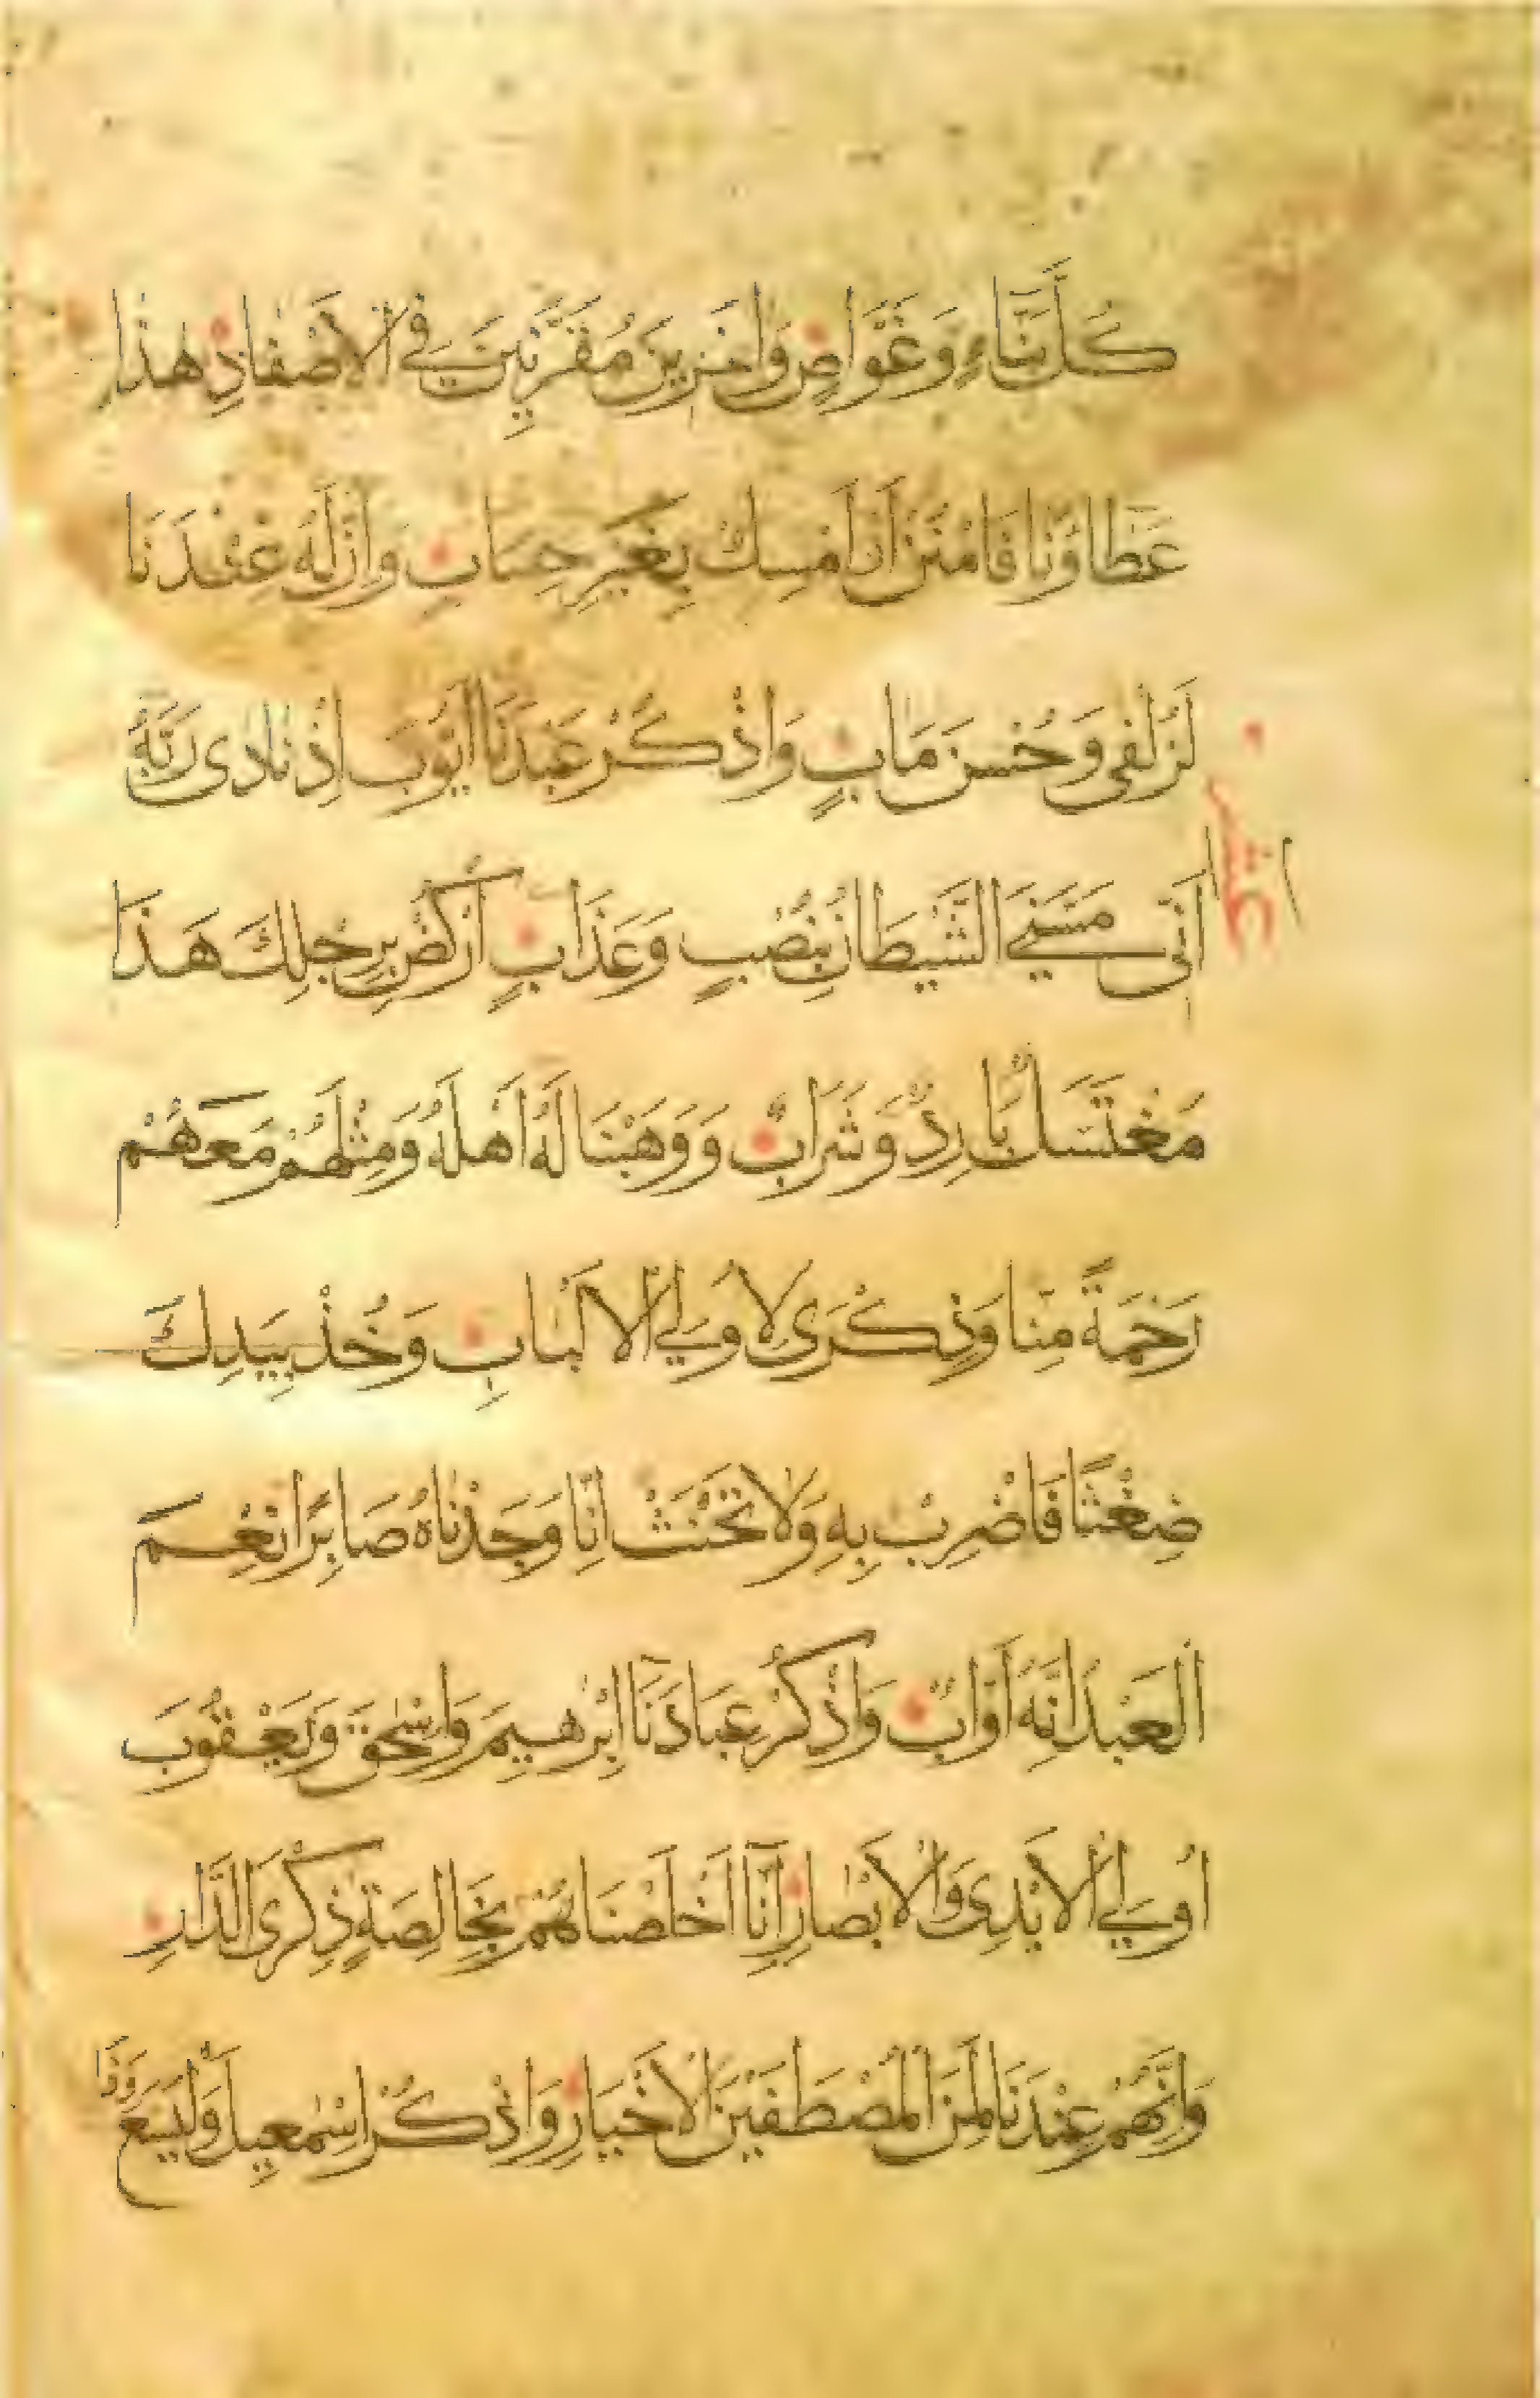 كُلَّ بَنَّاءٍ وَغَوَّاصٍ وَاخَرِينَ مُقَرَّنِينَ فِي الْاَصْفَادِ هٰذَا
عَطَاؤُنَا فَامْنُنْ اَوْ اَمْسِكْ بِغَيْرِ حِسَابٍ وَاِنَّ لَهُ عِنْدَنَا
لَزُلْفٰى وَحُسْنَ مَاٰبٍ وَاذْكُرْ عَبْدَنَا اَيُّوبَ اِذْ نَادٰى رَبَّهُ
اَنِّى مَسَّنِيَ الشَّيْطَانُ بِنُصْبٍ وَعَذَابٍ اُرْكُضْ بِرِجْلِكَ هَذَا
مُغْتَسَلٌ بَارِدٌ وَشَرَابٌ وَوَهَبْنَا لَهُ اَهْلَهُ وَمِثْلَهُمْ مَعَهُمْ
رَحْمَةً مِنَّا وَذِكْرَى لِاُولِي الْاَلْبَابِ وَخُذْ بِيَدِكَ
ضِغْثًا فَاضْرِبْ بِهِ وَلَا تَحْنَثْ اِنَّا وَجَدْنَاهُ صَابِرًا نِعْمَ
الْعَبْدُ اِنَّهُ اَوَّابٌ وَاذْكُرْ عِبَادَنَا اِبْرٰهِيمَ وَاِسْحٰقَ وَيَعْقُوبَ
اُولِي الْاَيْدِى وَالْاَبْصَارِ اِنَّا اَخْلَصْنَاهُمْ بِخَالِصَةٍ ذِكْرَى الدَّارِ
وَاِنَّهُمْ عِنْدَنَا لَمِنَ الْمُصْطَفَيْنَ الْاَخْيَارِ وَاذْكُرْ اِسْمٰعِيلَ وَالْيَسَعَ وَذَا